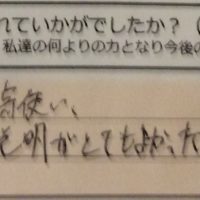 れていかがでしたか？（
私達の何よりの力となり今後の
使い、
明がとてもよかった